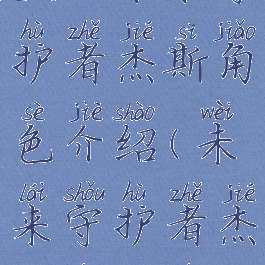 hù zhě jié sī jiǎo
护者杰斯角
sè jiè shào wèi
色介绍(未
lái shǒu hù zhě jié
来守护者杰